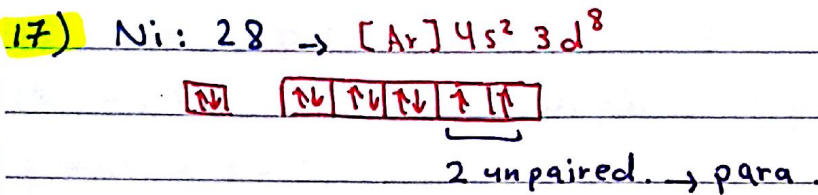 17) Ni: 28 → [Ar] 4s² 3d⁸
↑↓ ↑↓ ↑↓ ↑↓ ↑ ↑
2 unpaired. → para.